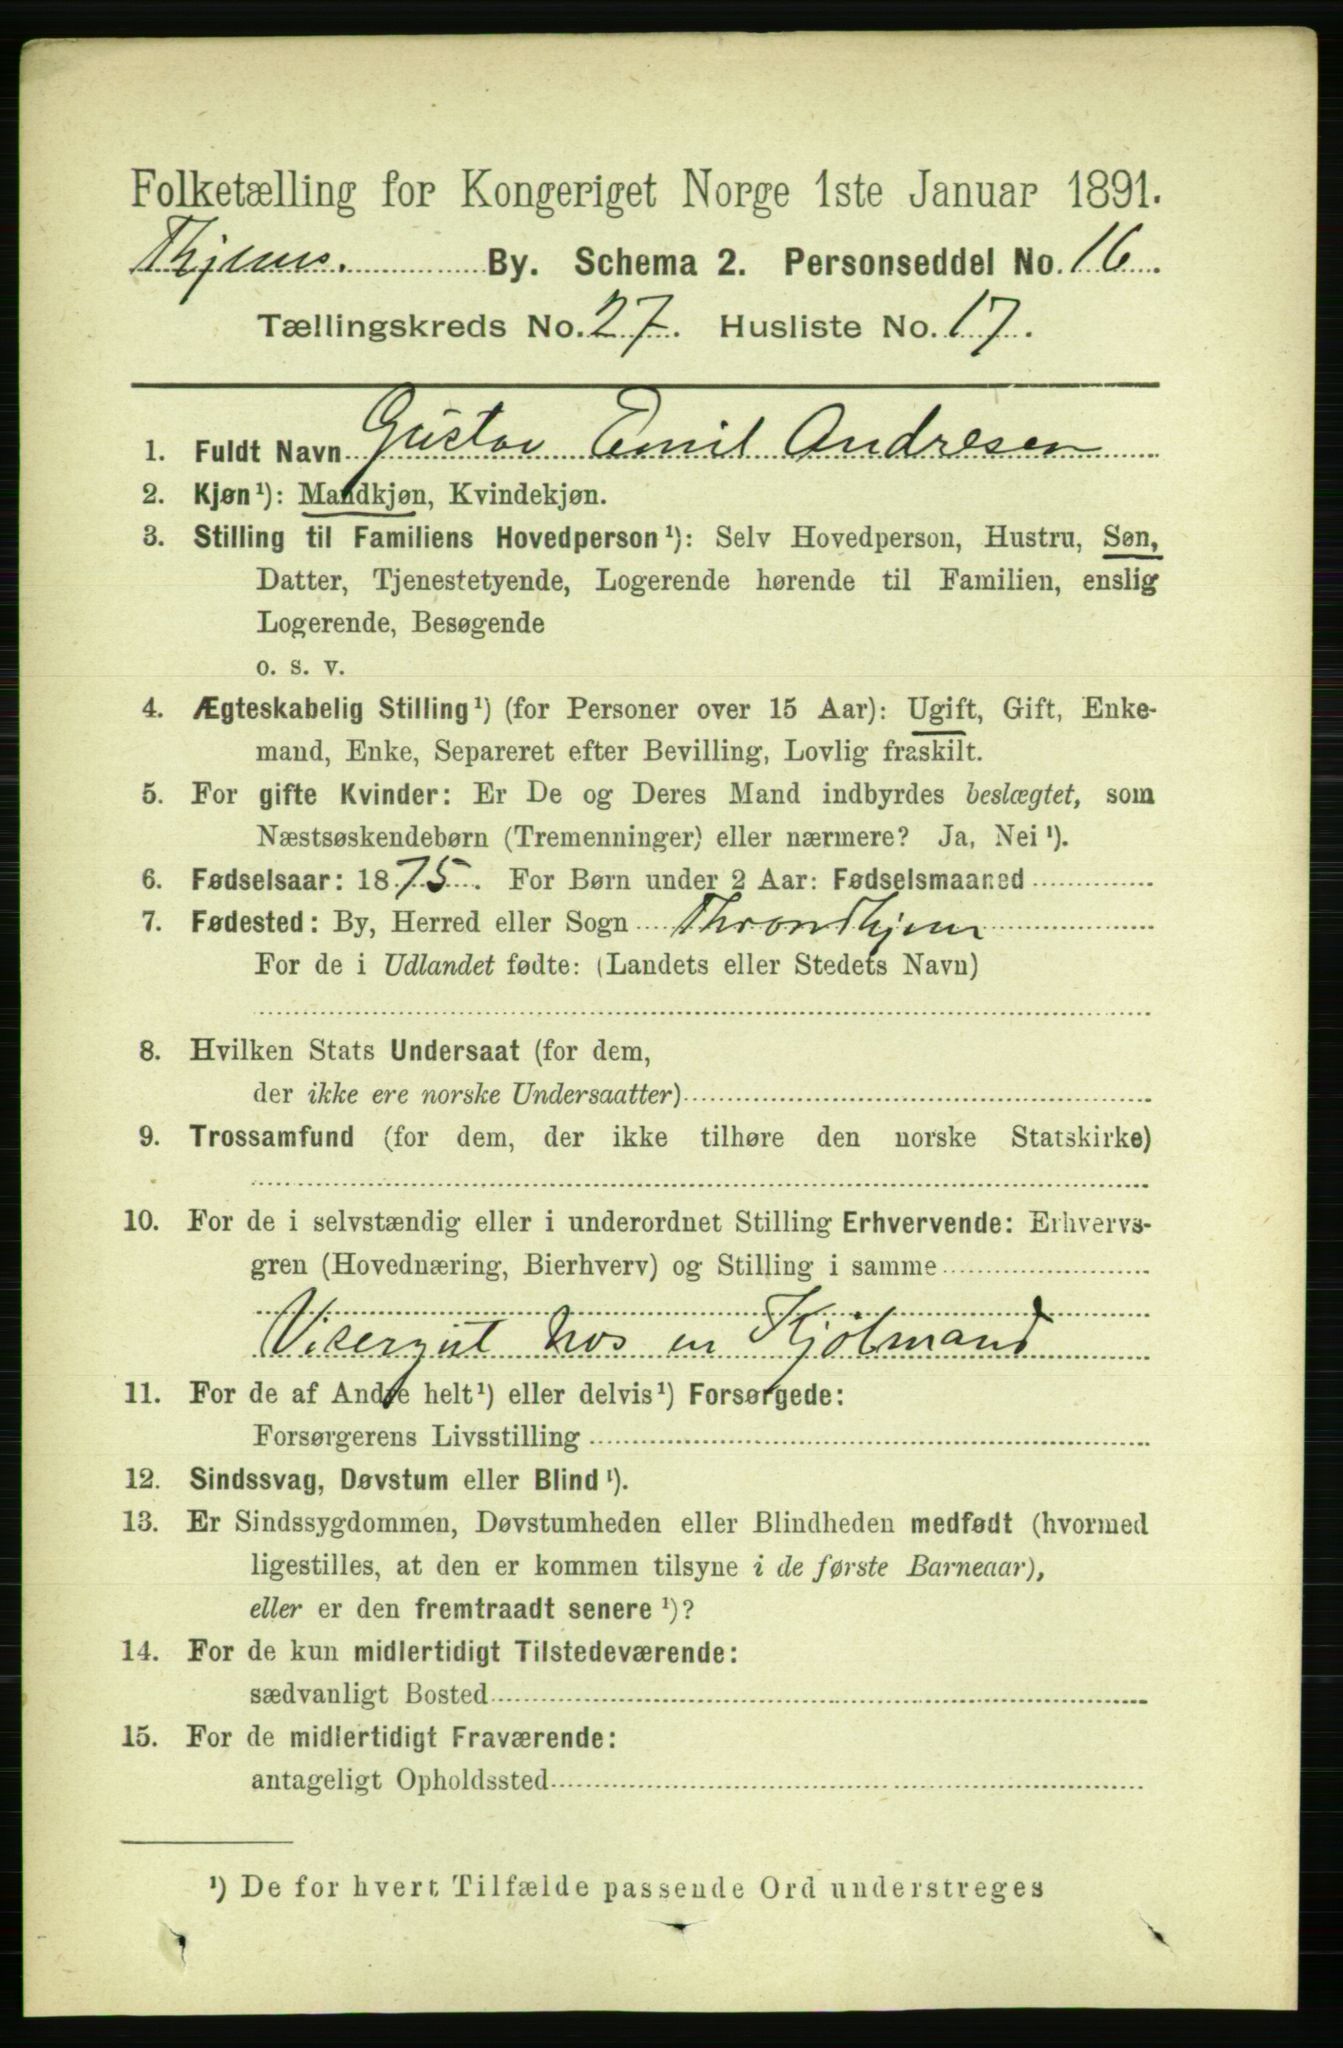 Folketælling for Kongeriget Norge 1ste Januar 1891.
Thjems. By. Schema 2. Personseddel No. 16.
Tællingskreds No. 27. Husliste No. 17.
1. Fuldt Navn Gustav Emil Andresen
2. Kjøn¹): Mandkjøn, Kvindekjøn.
3. Stilling til Familiens Hovedperson¹): Selv Hovedperson, Hustru, Søn,
Datter, Tjenestetyende, Logerende hørende til Familien, enslig
Logerende, Besøgende
o. s. v.
4. Ægteskabelig Stilling¹) (for Personer over 15 Aar): Ugift, Gift, Enke-
mand, Enke, Separeret efter Bevilling, Lovlig fraskilt.
5. For gifte Kvinder: Er De og Deres Mand indbyrdes beslægtet, som
Næstsøskendebørn (Tremenninger) eller nærmere? Ja, Nei¹).
6. Fødselsaar: 1875. For Børn under 2 Aar: Fødselsmaaned
7. Fødested: By, Herred eller Sogn Throndhjem
For de i Udlandet fødte: (Landets eller Stedets Navn)
8. Hvilken Stats Undersaat (for dem,
der ikke ere norske Undersaatter)
9. Trossamfund (for dem, der ikke tilhøre den norske Statskirke)
10. For de i selvstændig eller i underordnet Stilling Erhvervende: Erhvervs-
gren (Hovednæring, Bierhverv) og Stilling i samme
Visergut hos en Kjöbmand
11. For de af Andre helt¹) eller delvis¹) Forsørgede:
Forsørgerens Livsstilling
12. Sindssvag, Døvstum eller Blind¹).
13. Er Sindssygdommen, Døvstumheden eller Blindheden medfødt (hvormed
ligestilles, at den er kommen tilsyne i de første Barneaar),
eller er den fremtraadt senere¹)?
14. For de kun midlertidigt Tilstedeværende:
sædvanligt Bosted
15. For de midlertidigt Fraværende:
antageligt Opholdssted
¹) De for hvert Tilfælde passende Ord understreges